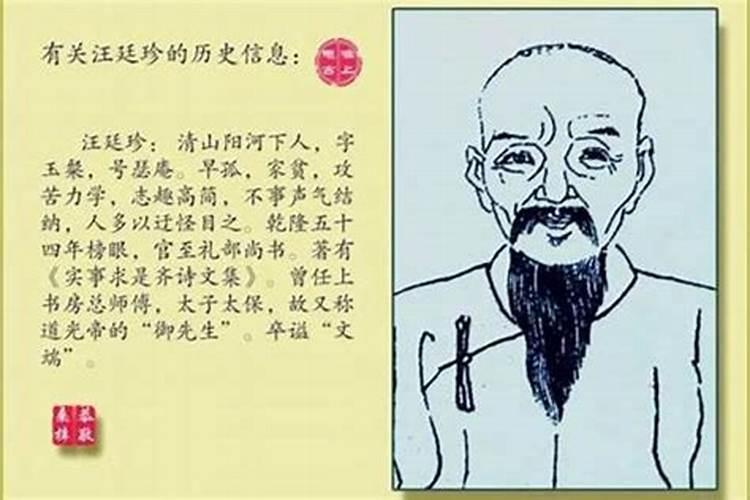 有关汪廷珍的历史信息：
汪廷珍： 清山阳河下人，字
玉粲，号瑟庵。早孤，家贫，攻
苦力学，志趣高简，不事声气结
纳，人多以迂怪目之。乾隆五十
四年榜眼，官至礼部尚书。著有
《实事求是齐诗文集》。曾任上
书房总师傅，太子太保，故又称
道光帝的“御先生”。卒谥“文
端”。
桑 恭
梓 敬